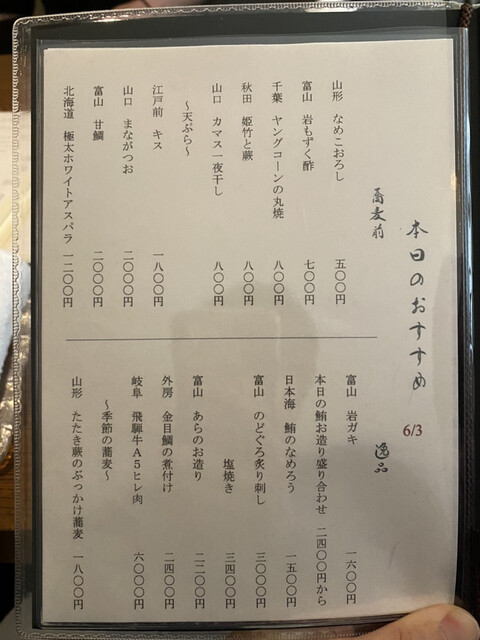 本日のおすすめ
6/3
蕎麦前
山形　なめこおろし　五〇〇円
富山　岩もずく酢　七〇〇円
千葉　ヤングコーンの丸焼　八〇〇円
秋田　姫竹と蕨　八〇〇円
山口　カマス一夜干し　八〇〇円
～天ぷら～
江戸前　キス　一八〇〇円
山口　まながつお　二〇〇〇円
富山　甘鯛　二〇〇〇円
北海道　極太ホワイトアスパラ　一二〇〇円
逸品
富山　岩ガキ　一六〇〇円
本日の鮪お造り盛り合わせ　二四〇〇円から
日本海　鮪のなめろう　一五〇〇円
富山　のどぐろ炙り刺し　三〇〇〇円
塩焼き　三四〇〇円
富山　あらのお造り　二二〇〇円
外房　金目鯛の煮付け　二四〇〇円
岐阜　飛騨牛A5ヒレ肉　六〇〇〇円
～季節の蕎麦～
山形　たたき蕨のぶっかけ蕎麦　一八〇〇円